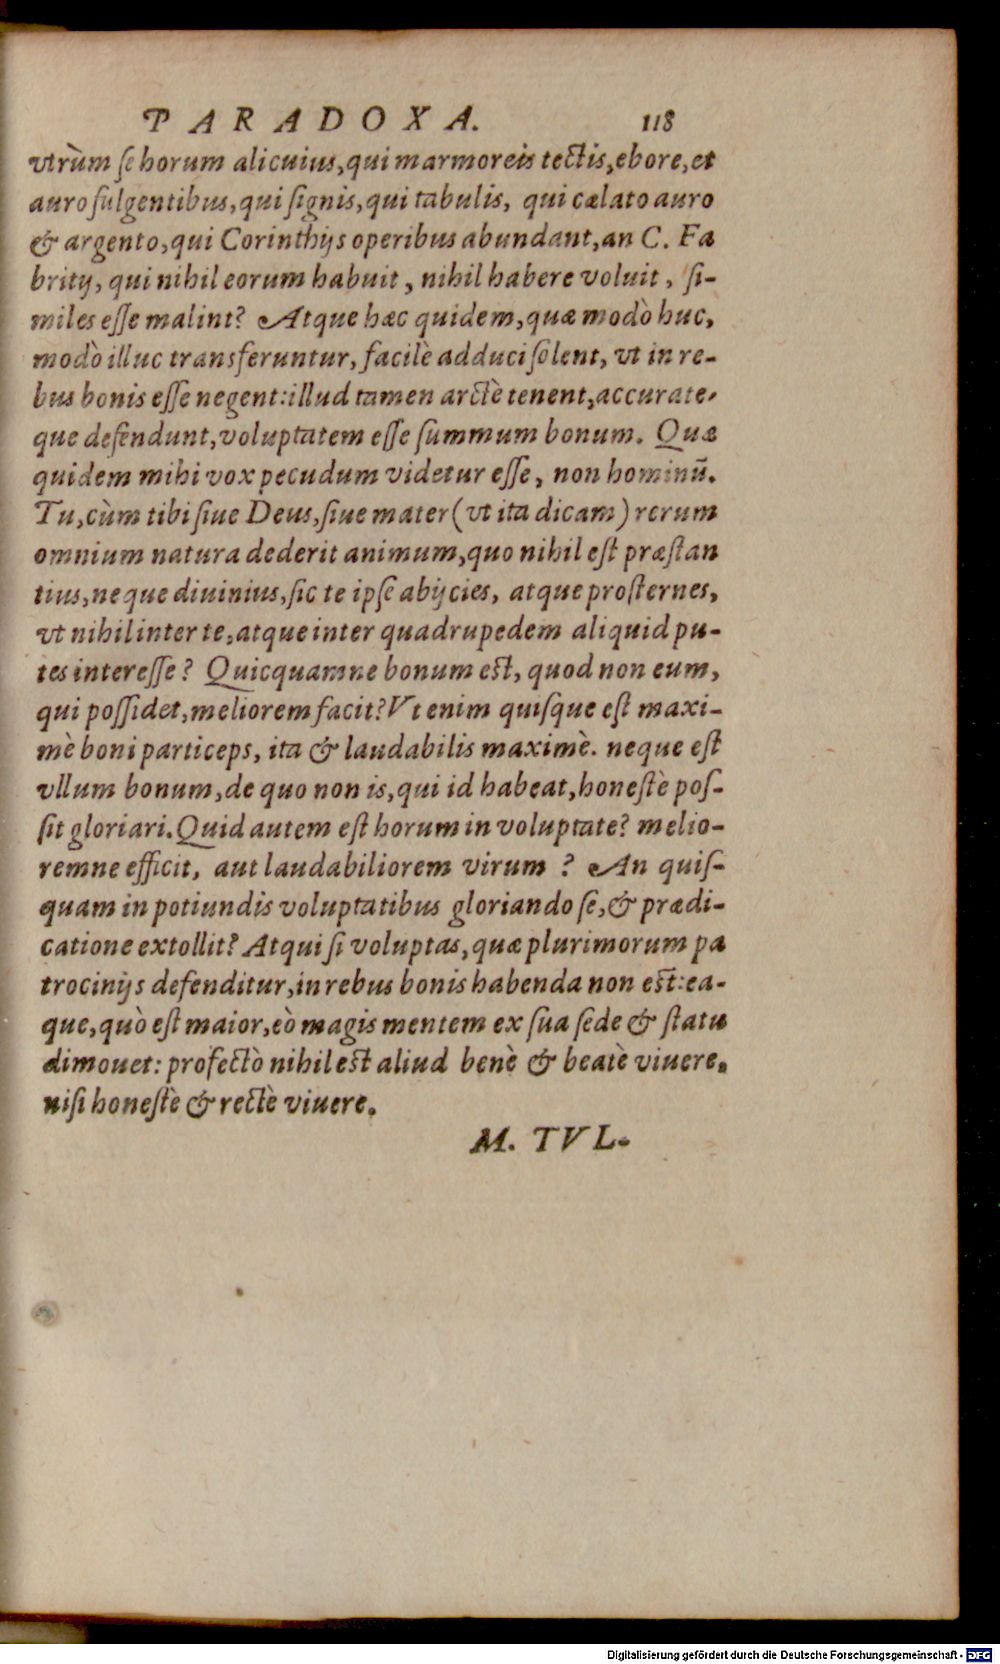 PARADOXA. 118
vtrùm ſe horum alicuius, qui marmoreis tectis, ebore, et
auro fulgentibus, qui ſignis, qui tabulis, qui cælato auro
& argento, qui Corinthijs operibus abundant, an C. Fa
britij, qui nihil eorum habuit, nihil habere voluit, ſi-
miles eſſe malint? Atque hæc quidem, quæ modò huc,
modò illuc transferuntur, facilè adduci ſolent, vt in re-
bus bonis eſſe negent: illud tamen arctè tenent, accurate-
que defendunt, voluptatem eſſe ſummum bonum. Quæ
quidem mihi vox pecudum videtur eſſe, non hominū.
Tu, cùm tibi ſiue Deus, ſiue mater (vt ita dicam) rerum
omnium natura dederit animum, quo nihil eſt præſtan
tius, neque diuinius, ſic te ipſe abijcies, atque proſternes,
vt nihil inter te, atque inter quadrupedem aliquid pu-
tes intereſſe? Quicquamne bonum est, quod non eum,
qui poſſidet, meliorem facit? Vt enim quiſque eſt maxi-
mè boni particeps, ita & laudabilis maximè. neque eſt
vllum bonum, de quo non is, qui id habeat, honeſtè poſ-
ſit gloriari. Quid autem eſt horum in voluptate? melio-
remne efficit, aut laudabiliorem virum? An quiſ-
quam in potiundis voluptatibus gloriando ſe, & prædi-
catione extollit? Atqui ſi voluptas, quæ plurimorum pa
trocinijs defenditur, in rebus bonis habenda non est: ea-
que, quò eſt maior, eò magis mentem ex ſua ſede & ſtatu
dimouet: profectò nihil est aliud benè & beatè viuere,
niſi honeſtè & rectè viuere.
M. TVL-
Digitalisierung gefördert durch die Deutsche Forschungsgemeinschaft - DFG